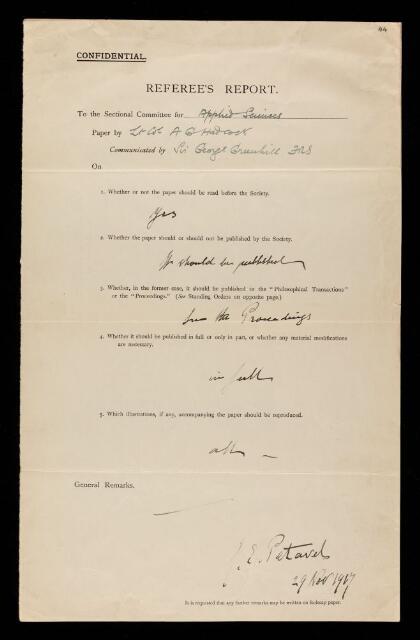 44
CONFIDENTIAL.
REFEREE'S REPORT.
To the Sectional Committee for Applied Sciences
Paper by Lt Col A G Hadcock
Communicated by Sir George Greenhill FRS
On
1. Whether or not the paper should be read before the Society.
Yes
2. Whether the paper should or should not be published by the Society.
It should be published
3. Whether, in the former case, it should be published in the "Philosophical Transactions"
or the "Proceedings." (See Standing Orders on opposite page.)
In the Proceedings
4. Whether it should be published in full or only in part, or whether any material modifications
are necessary.
in full
5. Which illustrations, if any, accompanying the paper should be reproduced.
all —
General Remarks.
J. E. Petavel
29 Nov 1917
It is requested that any further remarks may be written on foolscap paper.